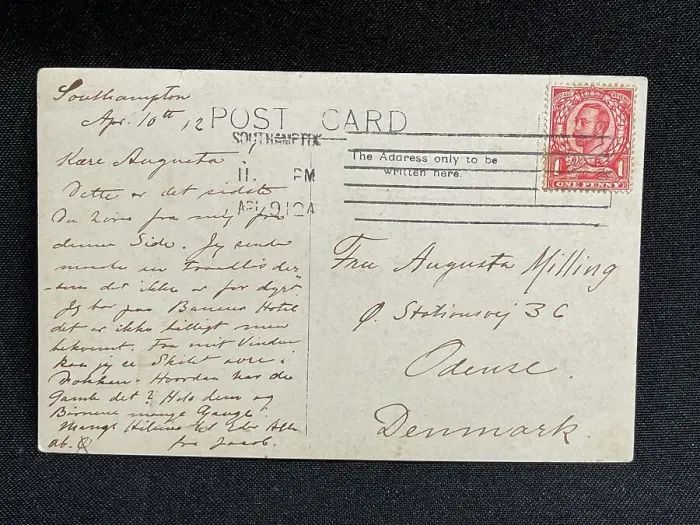 Southampton
Apr. 10th 12
POST CARD
SOUTHAMPTON
11. PM
AP 9 12A
The Address only to be
written here.
ONE PENNY
1 1
Kære Augusta
Dette er det sidste
Du fra mig fra
denne Side. Jeg sender
det ikke er for dyrt.
Jeg bor paa Hotel
det er ikke billigt men
bekvemt. Fra mit Vindue
kan jeg se Skibet
Dokken. Hvordan har de
Gamle det? Hils dem og
Börnene mange Gange.
Mange Hilsner til Eder Alle
fra Jacob.
Fru Augusta Milling
Ø. Stationsvej 36
Odense.
Denmark.